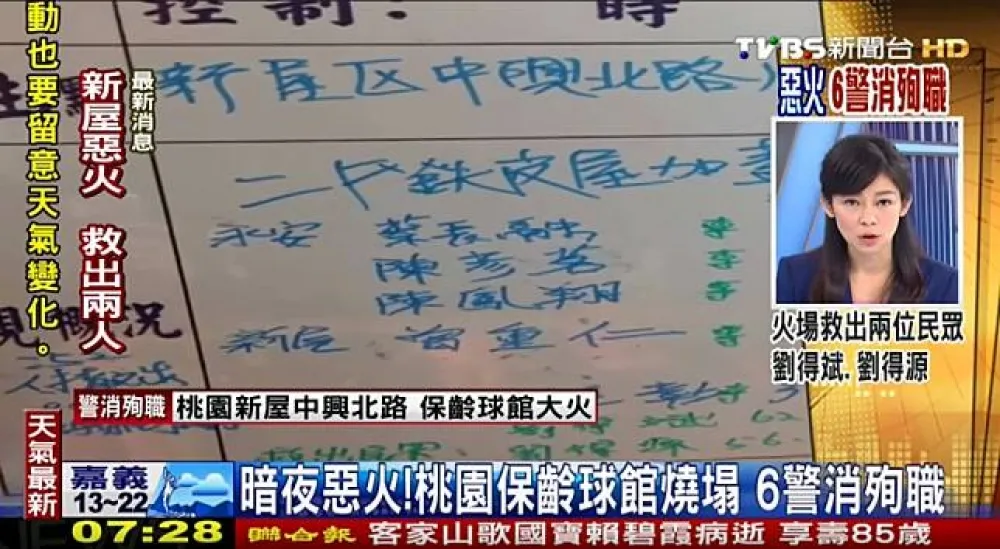 控制! 時
TVBS新聞台 HD
動也要留意天氣變化。
最新消息
新屋惡火 救出兩人
新屋区中興北路
二戶鉄皮屋加蓋
永安 葉
陳彥茗
陳鳳翔
新屋 曾重仁
現概況
惡火 6警消殉職
火場救出兩位民眾
劉得斌.劉得源
警消殉職 桃園新屋中興北路 保齡球館大火
天氣最新
嘉義
13~22
暗夜惡火!桃園保齡球館燒塌 6警消殉職
07:28 聯合報 客家山歌國寶賴碧霞病逝 享壽85歲